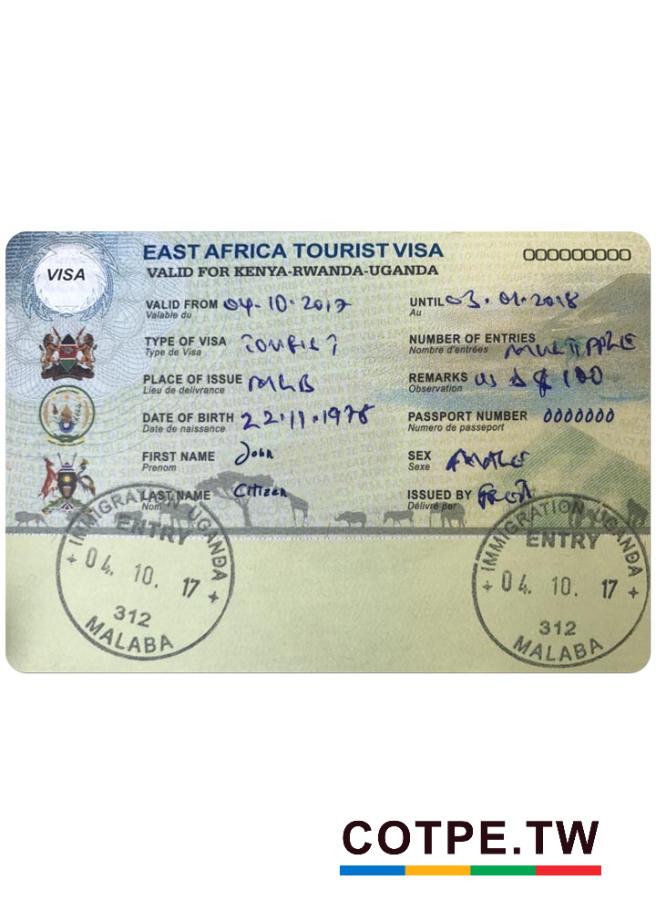 VISA
EAST AFRICA TOURIST VISA
000000000
VALID FOR KENYA-RWANDA-UGANDA
VALID FROM 04.10.2017
Valable du
UNTIL 03.01.2018
Au
TYPE OF VISA TOURIST
Type de Visa
NUMBER OF ENTRIES MULTIPLE
Nombre d'entrées
PLACE OF ISSUE MLB
Lieu de delivrance
REMARKS US D $ 100
Observation
DATE OF BIRTH 22.11.1978
Date de naissance
PASSPORT NUMBER 0000000
Numero de passeport
FIRST NAME John
Prenom
SEX MALE
Sexe
LAST NAME Citizen
Nom
ISSUED BY
Délivré par
IMMIGRATION UGANDA
ENTRY
04. 10. 17
312
MALABA
IMMIGRATION UGANDA
ENTRY
04. 10. 17
312
MALABA
COTPE.TW